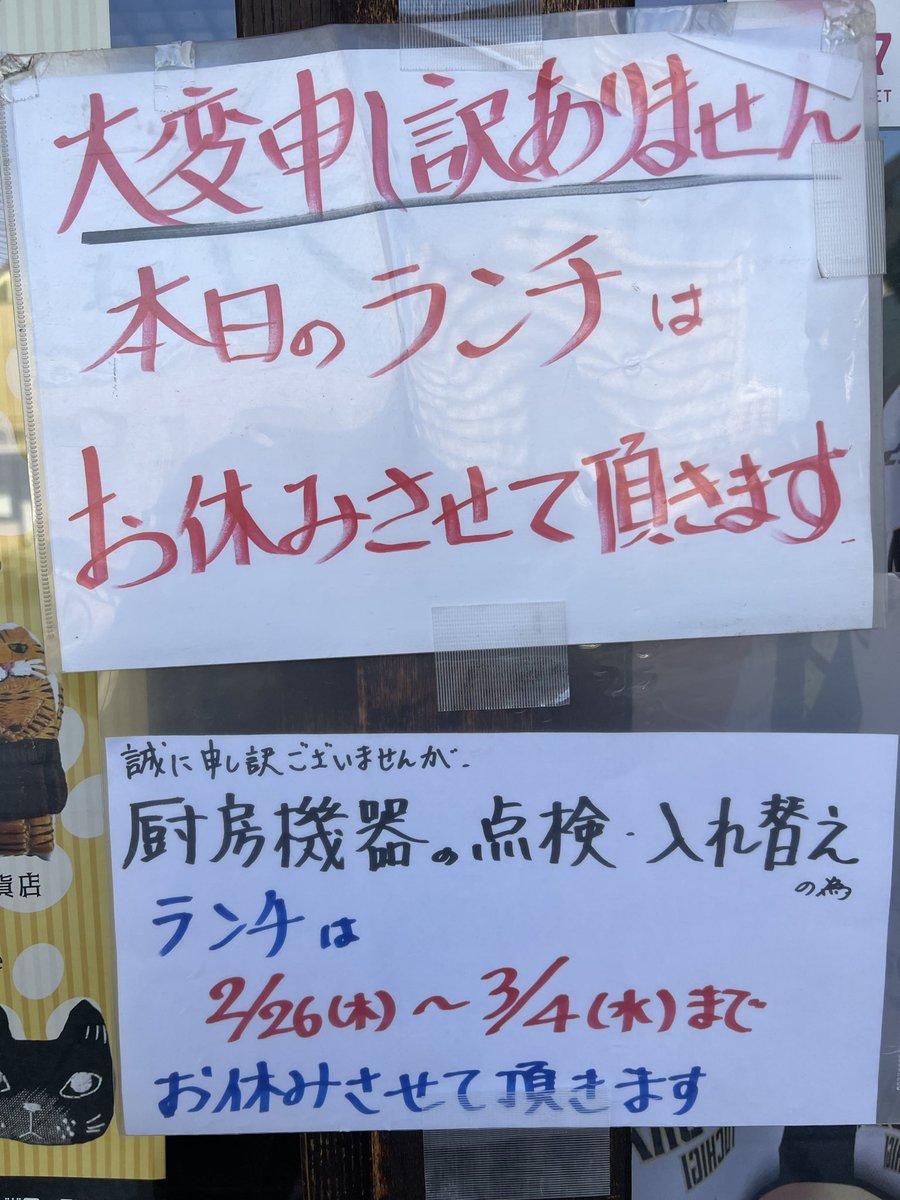 大変申し訳ありません
本日のランチは
お休みさせて頂きます
誠に申し訳ございませんが
厨房機器の点検・入れ替え
の為
ランチは
2/26(木)〜3/4(水)まで
お休みさせて頂きます
貨店